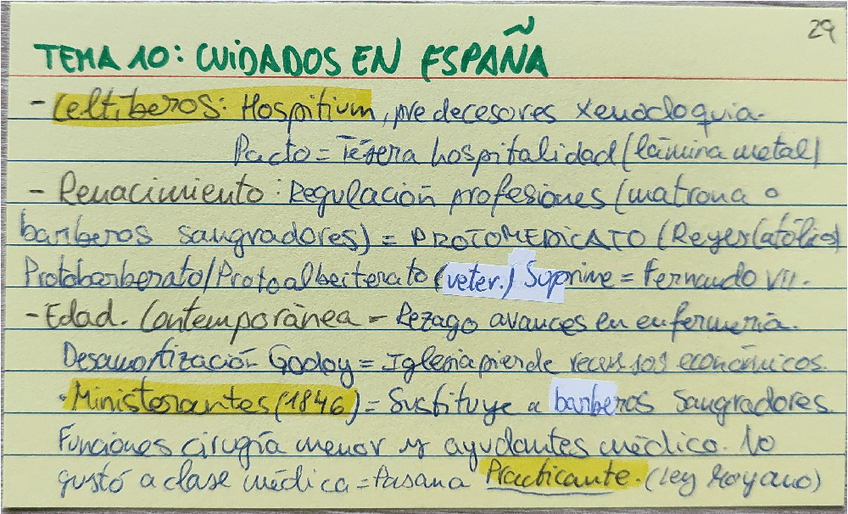 29
TEMA 10: CUIDADOS EN ESPAÑA
- Celtíberos: Hospitium, predecesores xenodoquia.
Pacto = Tésera hospitalidad (lámina metal)
- Renacimiento: Regulación profesiones (matrona o
barberos sangradores) = PROTOMEDICATO (Reyes Católicos)
Protobarberato/Protoalbeiterato (veter.) Suprime = Fernando VII.
- Edad. Contemporánea - Rezago avances en enfermería.
Desamortización Godoy = Iglesia pierde recursos económicos.
· Ministrantes (1846) = Sustituye a barberos sangradores.
Funciones cirugía menor y ayudantes médico. No
gustó a clase médica = Pasan a Practicante. (Ley Moyano)